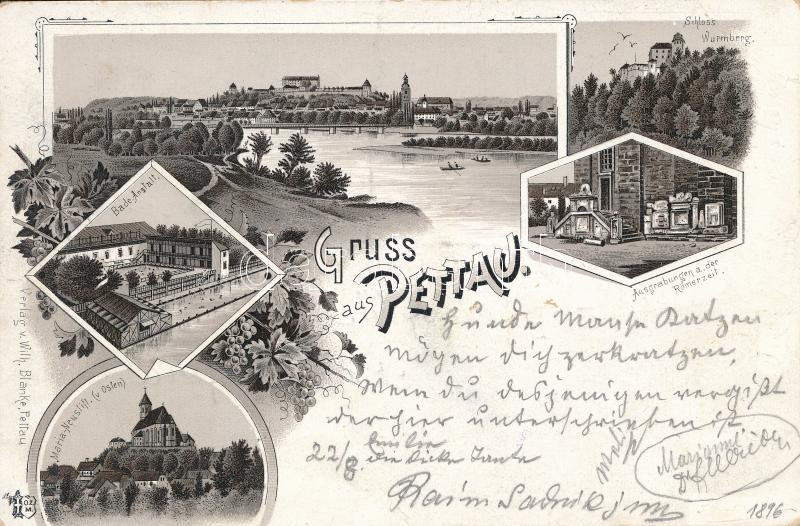 Schloss
Wurmberg.
Bade-Anstalt.
Gruss
aus
Pettau.
Ausgrabungen a. der
Römerzeit.
Verlag v. Wilh. Blanke, Pettau
Maria-Neustift. (v. Osten)
Hunde Manse Katzen
mögen dich zerkratzen,
Wem du desjenigen vergißt
der hier unterschrieben ist
22/8
die dicke Tante
Marianne
1896